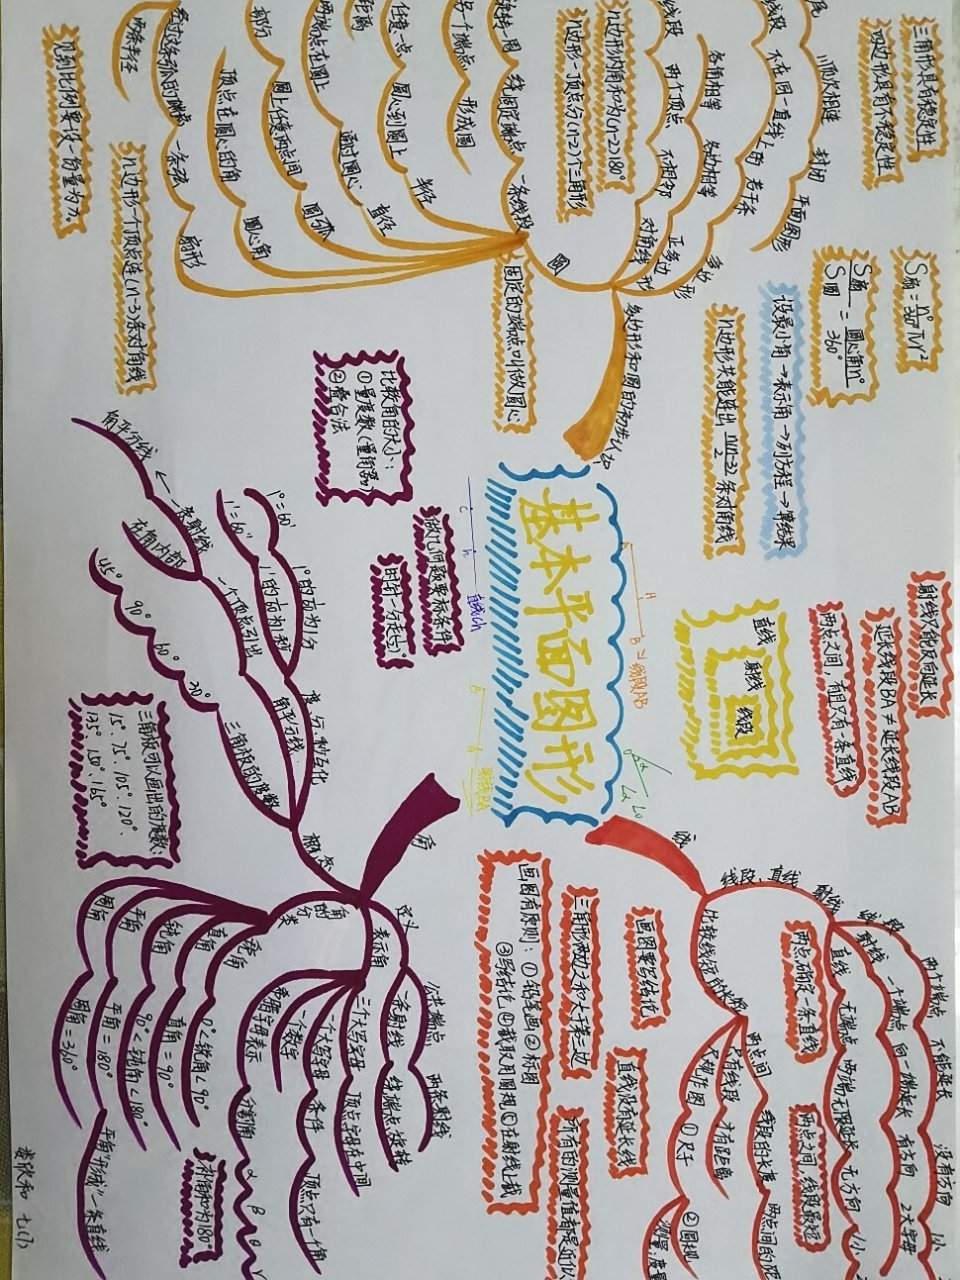 基本平面图形
直线
射线
线段
线
线段、直线
射线
线段
两个端点
不能延长
没有方向
射线
一个端点
向一端延长
有方向
2大写字母
直线
无端点
两端无限延长
无方向
比较线段
两点间
线段的长度
只有线段
才有距离
尺规作图
①尺子
②圆规
射线只能反向延长
延长线段BA≠延长线段AB
两点之间,有且只有一条直线
两点确定一条直线
两点之间,线段最短
画图要写结论
直线没有延长线
三角形两边之和大于第三边
画图有原则:①铅笔画②标图
③写结论④截取用圆规⑤在射线上截
A
H
B
线段AB
C
h
直线Ch
B
A
射线BA
角
定义
公共端点
两条射线
一条射线
绕端点旋转
表示角
三个大写字母
顶点字母在中间
一个大写字母
条件
顶点只有一个角
一个数字
希腊字母表示
α
β
角的分类
锐角
0°<锐角<90°
直角
直角=90°
钝角
90°<钝角<180°
平角
平角=180°
平角"形成"一条直线
周角
周角=360°
补角和为180°
概念
度、分、秒互化
1°=60′
1′=60″
角平分线
一个顶点引出
一条射线
在角内部
角平分线
三角板的度数
30°
60°
90°
45°
三角板可以画出的度数:
15°、75°、105°、120°、
135°、150°、165°
比较角的大小:
①量度数(量角器)
②叠合法
做几何题要标条件
多边形和圆的初步认识
多边形
若干条
线段
不在同一直线上的
顺次相连
封闭
平面图形
正多边形
各边相等
各角相等
对角线
不相邻
两个顶点
线段
圆
一条线段
绕固定端点
旋转一周
另一个端点
形成圆
固定的端点叫做圆心
半径
圆心到圆上
任意一点
距离
直径
通过圆心
两端点在圆上
圆弧
圆上任意两点间
部分
圆心角
顶点在圆心的角
扇形
一条弧
经过这条弧的端点
两条半径
三角形具有稳定性
四边形具有不稳定性
S扇=n°/360°πr²
S扇/S圆=圆心角n°/360°
设最小角→表示角→列方程→算结果
n边形共能连出n(n-3)/2条对角线
n边形内角和为(n-2)180°
n边形一顶点分(n-2)个三角形
n边形一个顶点连(n-3)条对角线
见到比例要设一份量为x。
七(1)